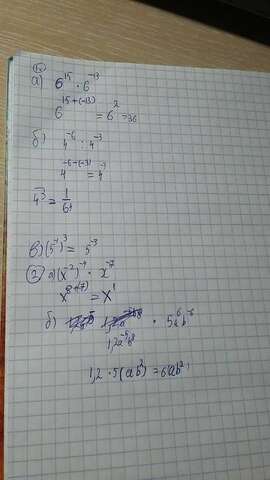 ①
а) 6¹⁵ · 6⁻¹³
6¹⁵⁺⁽⁻¹³⁾ = 6² = 36
б) 4⁻⁶ · 4⁻³
4⁻⁶⁻⁽⁻³⁾ = 4⁻³
4⁻³ = 1/64
в) (5⁻¹)³ = 5⁻³
② а) (x²)⁻⁴ · x⁻⁷
= x¹
б) · 5a⁶b⁻⁶
1,2a⁻⁵b⁸
1,2 · 5(ab²) = 6ab²